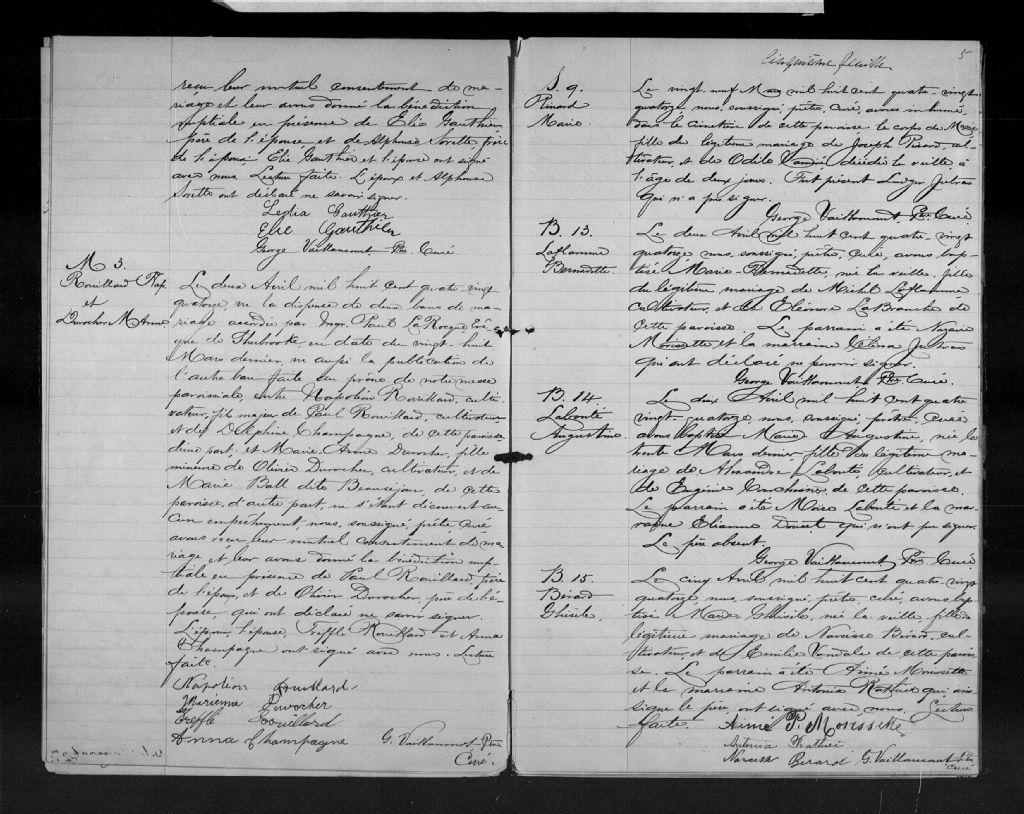 recu leur mutuel consentement de ma-
riage et leur avons donné la bénédiction
nuptiale en présence de Elie Gauthier
père de l'épouse et de Alphonse frère
de l'époux Elie Gauthier et l'épouse ont signé
avec nous. Lecture faite. L'époux et Alphonse
ont déclaré ne savoir signer.
Gauthier
Elie Gauthier
George Vaillancourt Ptre Curé.
M 3.
Rouillard Nap.
et
Durocher M Anne
Le deux Avril mil huit cent quatre vingt
quatorze, vu la dispense de deux bans de ma-
riage accordée par Mgr. Paul LaRocque Evê-
que de Sherbrooke, en date du vingt-huit
Mars dernier, vu aussi la publication de
l'autre ban faite au prône de notre messe
paroissiale, entre Napoléon Rouillard, culti-
vateur, fils majeur de Paul Rouillard, cultivateur
et de Delphine Champagne, de cette paroisse
d'une part, et Marie Anne Durocher, fille
mineure de Olivier Durocher, cultivateur, et de
Marie Ball dite Beauséjour, de cette
paroisse, d'autre part, ne s'étant découvert au-
cun empêchement, nous, soussigné, prêtre Curé
avons recu leur mutuel consentement de ma-
riage et leur avons donné la bénédiction nup-
tiale en présence de Paul Rouillard, père
de l'époux, et de Olivier Durocher, père de l'é-
pouse, qui ont déclaré ne savoir signer.
L'époux, l'épouse, Treffle Rouillard et Anna
Champagne ont signé avec nous. Lecture
faite.
Napoléon Rouillard
Marienna Durocher
Treffle Rouillard
Anna Champagne G. Vaillancourt Ptre
Curé.
Cinquième feuille 5
S. 9.
Pinard
Marie
Le vingt-neuf Mars mil huit cent quatre-vingt
quatorze nous, soussigné, prêtre, Curé, avons inhumé,
dans le cimetière de cette paroisse le corps de Marie
fille du légitime mariage de Joseph Pinard, cul-
tivateur, et de Odile décédée la veille à
l'âge de deux jours. Fut présent Ludger Jutras
qui n'a pu signer.
George Vaillancourt Ptre Curé
B. 13.
Laflamme
Bernadette
Le deux Avril mil huit cent quatre-vingt
quatorze nous, soussigné, prêtre, Curé, avons bap-
tisé Marie-Bernadette, née la veille, fille
du légitime mariage de Michel Laflamme
cultivateur, et de Eléonore LaBranche de
cette paroisse. Le parrain a été Nazaire
Morissette et la marraine Jutras
qui ont déclaré ne pouvoir signer.
George Vaillancourt Ptre Curé.
B. 14
Labonté
Augustine
Le deux Avril mil huit cent quatre
vingt-quatorze nous, soussigné, prêtre, Curé
avons baptisé Marie Augustine, née le
trente Mars dernier, fille du légitime ma-
riage de Alexandre Labonté, Cultivateur, et
de Eugénie de cette paroisse.
Le parrain a été Moïse Labonté et la mar-
raine Elianne Doucet qui n'ont pu signer.
Le père absent.
George Vaillancourt Ptre Curé
B. 15
Bérard
Ghisile.
Le cinq Avril mil huit cent quatre-vingt
quatorze nous, soussigné, prêtre, Curé, avons bap-
tisé Marie Ghisile, née la veille, fille du
légitime mariage de Narcisse Bérard, cul-
tivateur, et de Emilie Vandale de cette parois-
se. Le parrain a été Aimé Morissette
et la marraine Antonia qui, ain-
si que le père, ont signé avec nous. Lecture
faite. Aimé P. Morissette
Antonia
Narcisse Berard G. Vaillancourt Ptre
Curé